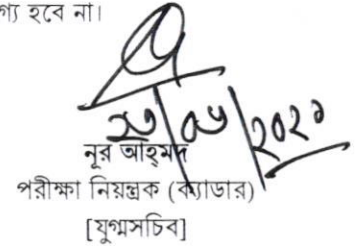 গ্য হবে না।
২০২১
নূর আহ্‌মদ
পরীক্ষা নিয়ন্ত্রক (ক্যাডার)
[যুগ্মসচিব]